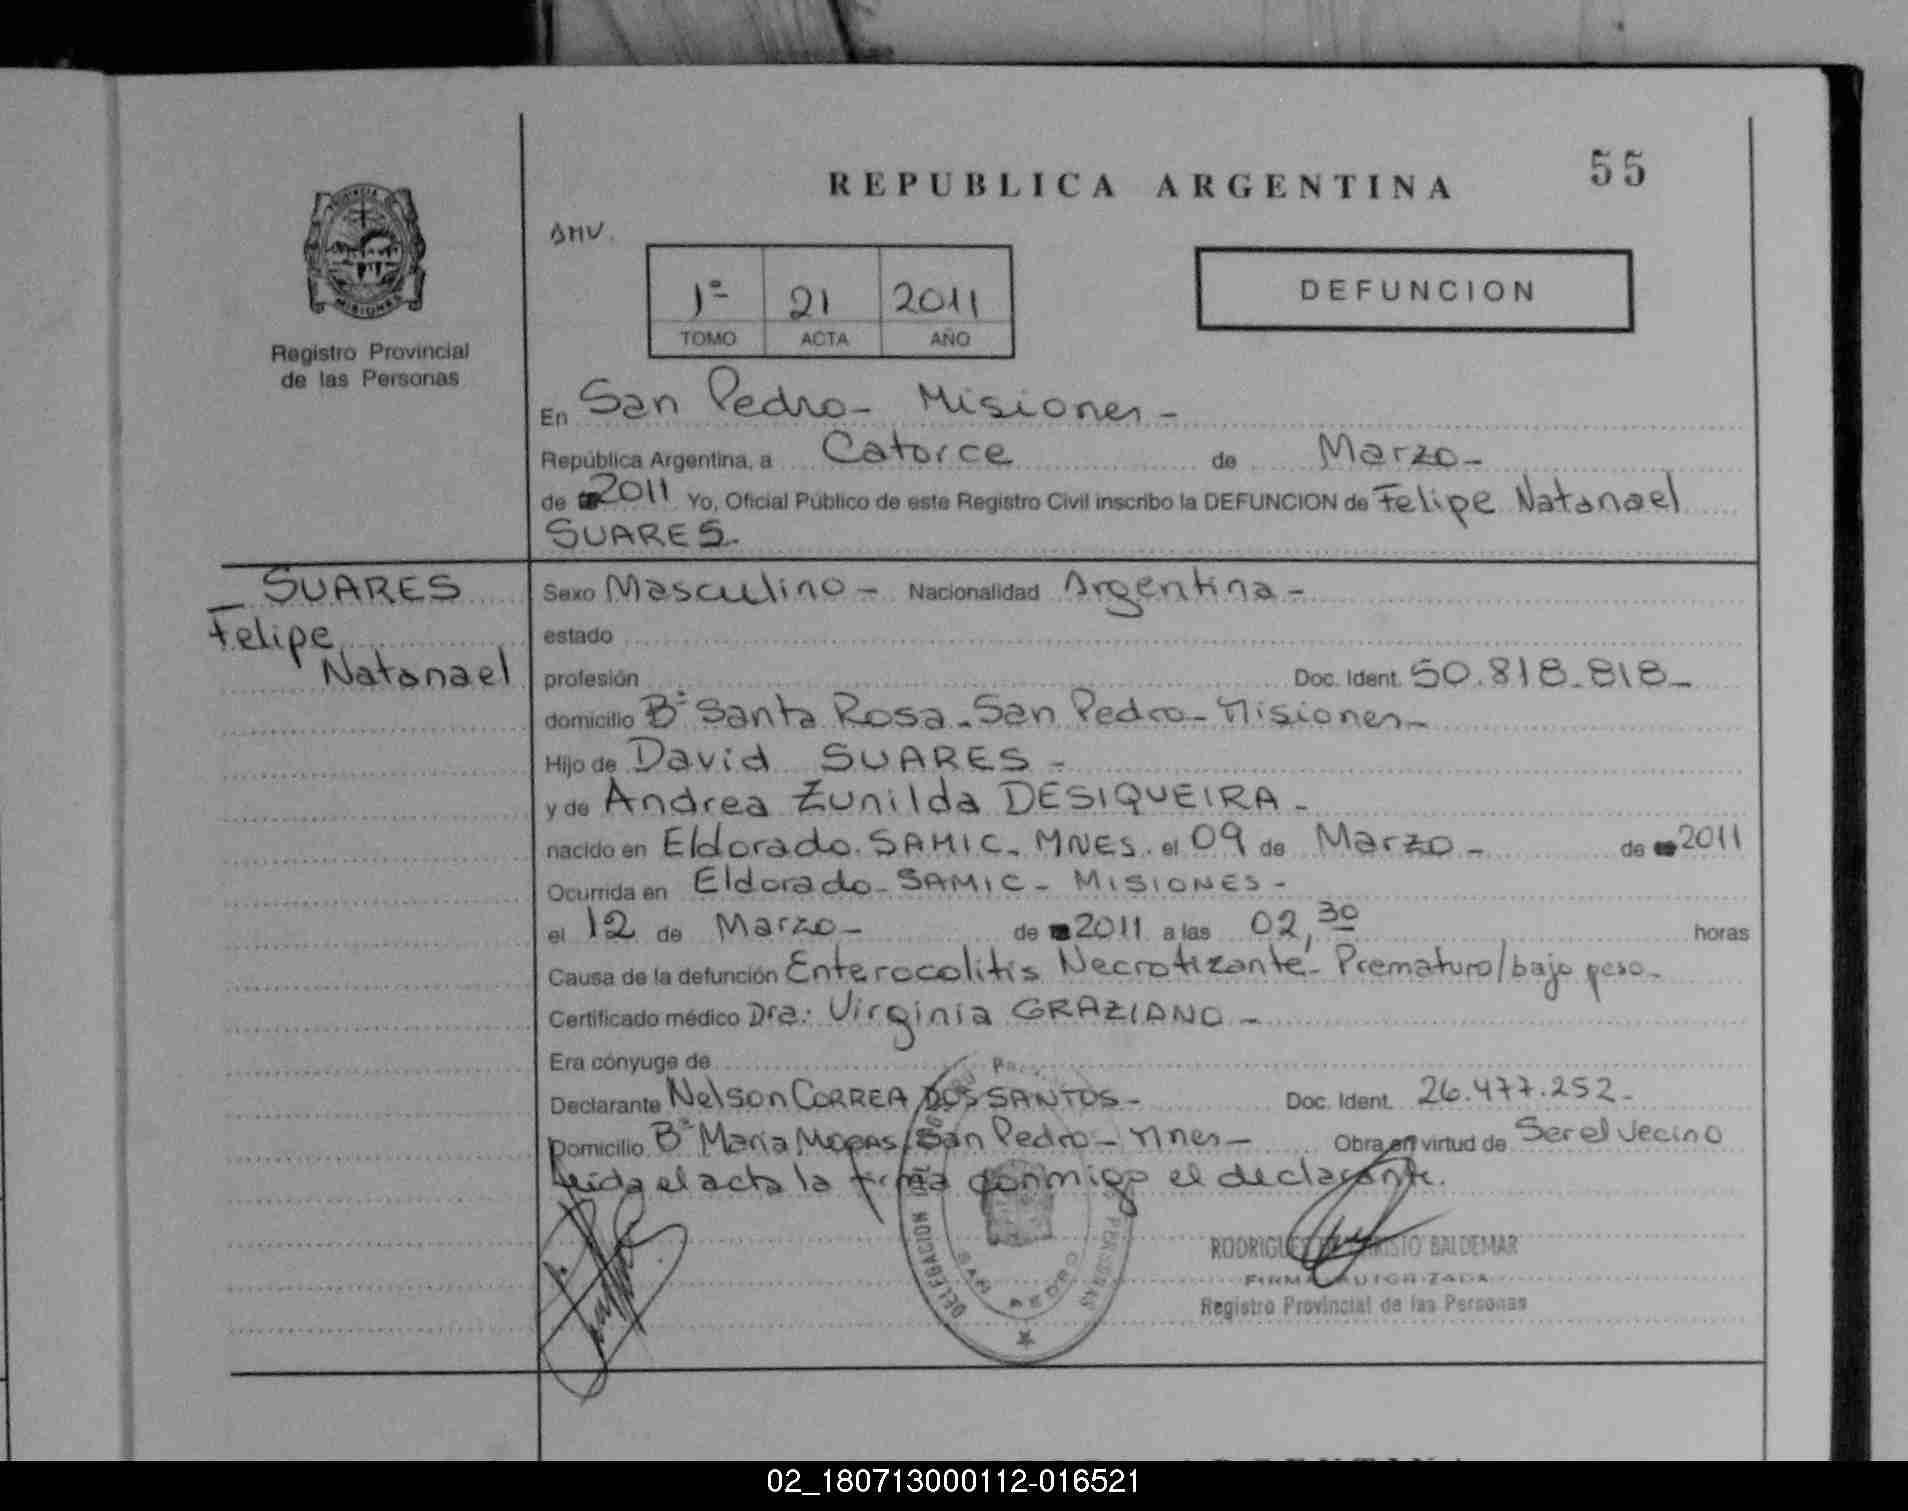 55
REPUBLICA ARGENTINA
PROVINCIA
MISIONES
Registro Provincial
de las Personas
1º 21 2011
TOMO ACTA AÑO
DEFUNCION
En San Pedro - Misiones -
República Argentina, a Catorce de Marzo -
de 2011 Yo, Oficial Público de este Registro Civil inscribo la DEFUNCION de Felipe Natanael
SUARES.
SUARES
Felipe
Natanael
Sexo Masculino - Nacionalidad Argentina -
estado
profesión Doc. Ident. 50.818.818 -
domicilio Bº Santa Rosa - San Pedro - Misiones -
Hijo de David SUARES -
y de Andrea Zunilda DESIQUEIRA -
nacido en Eldorado. SAMIC - MNES. el 09 de Marzo - de 2011
Ocurrida en Eldorado - SAMIC - MISIONES -
el 12 de Marzo - de 2011 a las 02,30 horas
Causa de la defunción Enterocolitis Necrotizante - Prematuro/bajo peso -
Certificado médico Dra: Virginia GRAZIANO -
Era cónyuge de
Declarante Nelson CORREA DOS SANTOS - Doc. Ident. 26.477.252 -
Domicilio Bº Maria San Pedro - Mnes - Obra en virtud de Ser el vecino
Leida el acta la firma conmigo el declarante.
DELEGACION SAN PEDRO PERSONAS
RODRIGUES BALDEMAR
FIRMA AUTORIZADA
Registro Provincial de las Personas
02_180713000112-016521